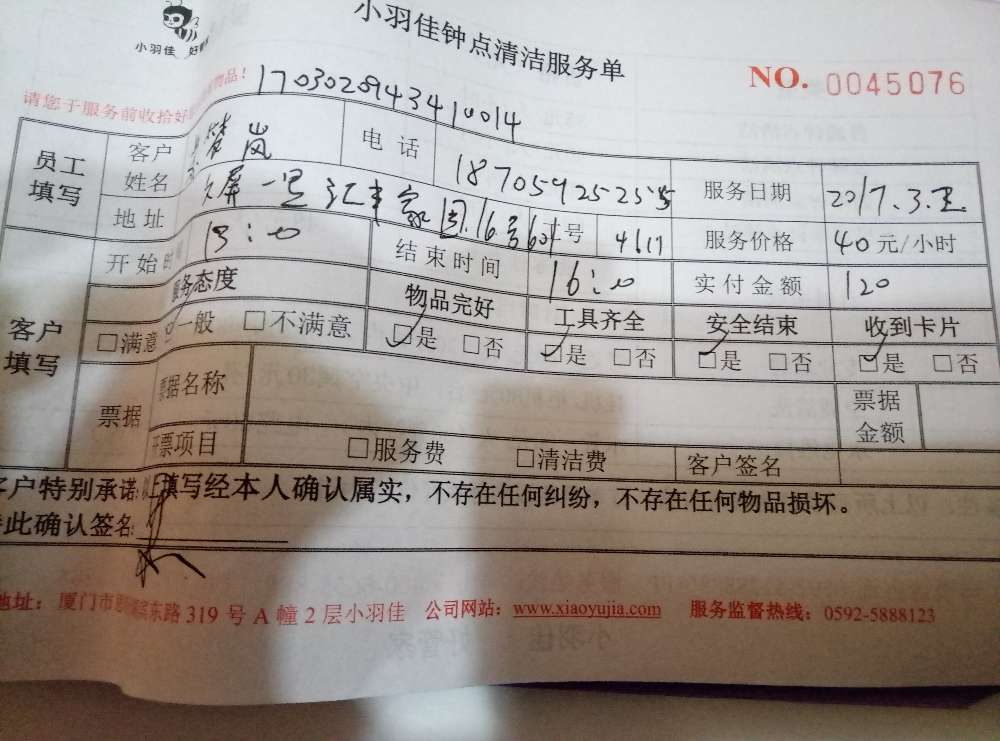 小羽佳 好
小羽佳钟点清洁服务单
NO. 0045076
请您于服务前收拾好 物品!
170302094341 0014
员工填写 客户姓名 岚 电话 服务日期 2017.3.
地址 汇丰家园16号601 号 4617 服务价格 40元/小时
开始时 13:00 结束时间 16:00 实付金额 120
客户填写 服务态度 物品完好 工具齐全 安全结束 收到卡片
□满意 一般 □不满意 □是 □否 □是 □否 □是 □否 □是 □否
票据 票据名称 票据金额
开票项目 □服务费 □清洁费 客户签名
客户特别承诺: 填写经本人确认属实，不存在任何纠纷，不存在任何物品损坏。
此确认签名:
地址：厦门市 东路 319 号 A 幢 2 层小羽佳 公司网站：www.xiaoyujia.com 服务监督热线：0592-5888123